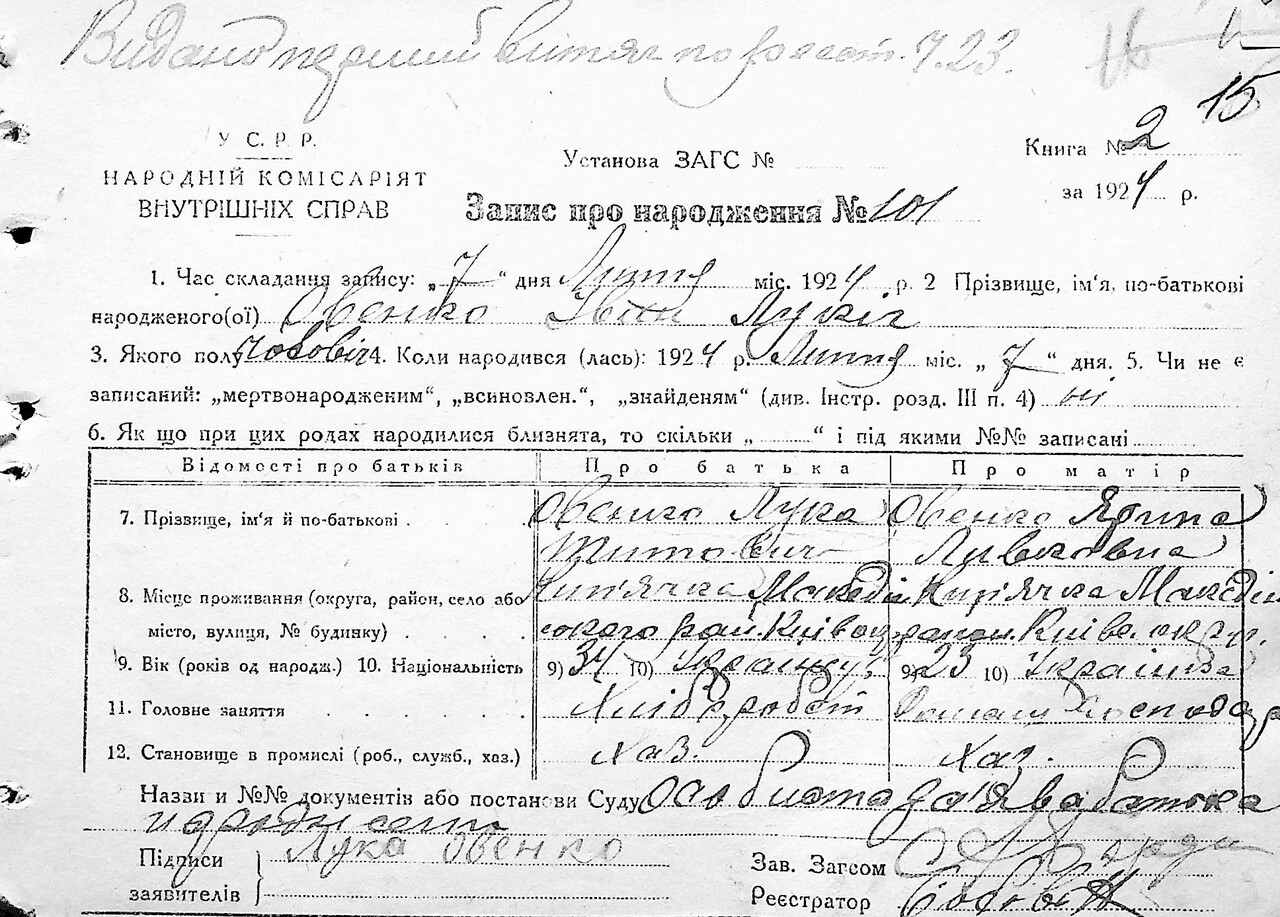 Видано перший витяг по реєст. Ч. 23.
15
У С. Р. Р.
НАРОДНІЙ КОМІСАРІЯТ
ВНУТРІШНІХ СПРАВ
Установа ЗАГС №
Книга № 2
за 1924 р.
Запис про народження № 101
1. Час складання запису: „ 7 “ дня Липня міс. 1924 р. 2 Прізвище, ім'я, по-батькові
народженого(ої) Овенко Іван Лукіч
3. Якого полу чоловіч 4. Коли народився (лась): 1924 р. Липня міс. „ 7 “ дня. 5. Чи не є
записаний: „мертвонародженим“, „всиновлен.“, „знайденям“ (див. Інстр. розд. III п. 4) ні
6. Як що при цих родах народилися близнята, то скільки „ “ і під якими №№ записані
Відомості про батьків Про батька Про матір
7. Прізвище, ім'я й по-батькові Овенко Лука Овенко Ярина
Титович Левковна
8. Місце проживання (округа, район, село або Кип'ячка Македін Кип'ячка Македін
місто, вулиця, № будинку) ського рай. Київ район. Київс. окру.
9. Вік (років од народж.) 10. Національність 9) 34 10) Українец 9) 23 10) Українка
11. Головне заняття Хлібороб Домаш господар
12. Становище в промислі (роб., служб., хаз.) хаз. хаз.
Назви и №№ документів або постанови Суду Особиста заява батька
Підписи Лука Овенко
заявителів
Зав. Загсом
Реєстратор